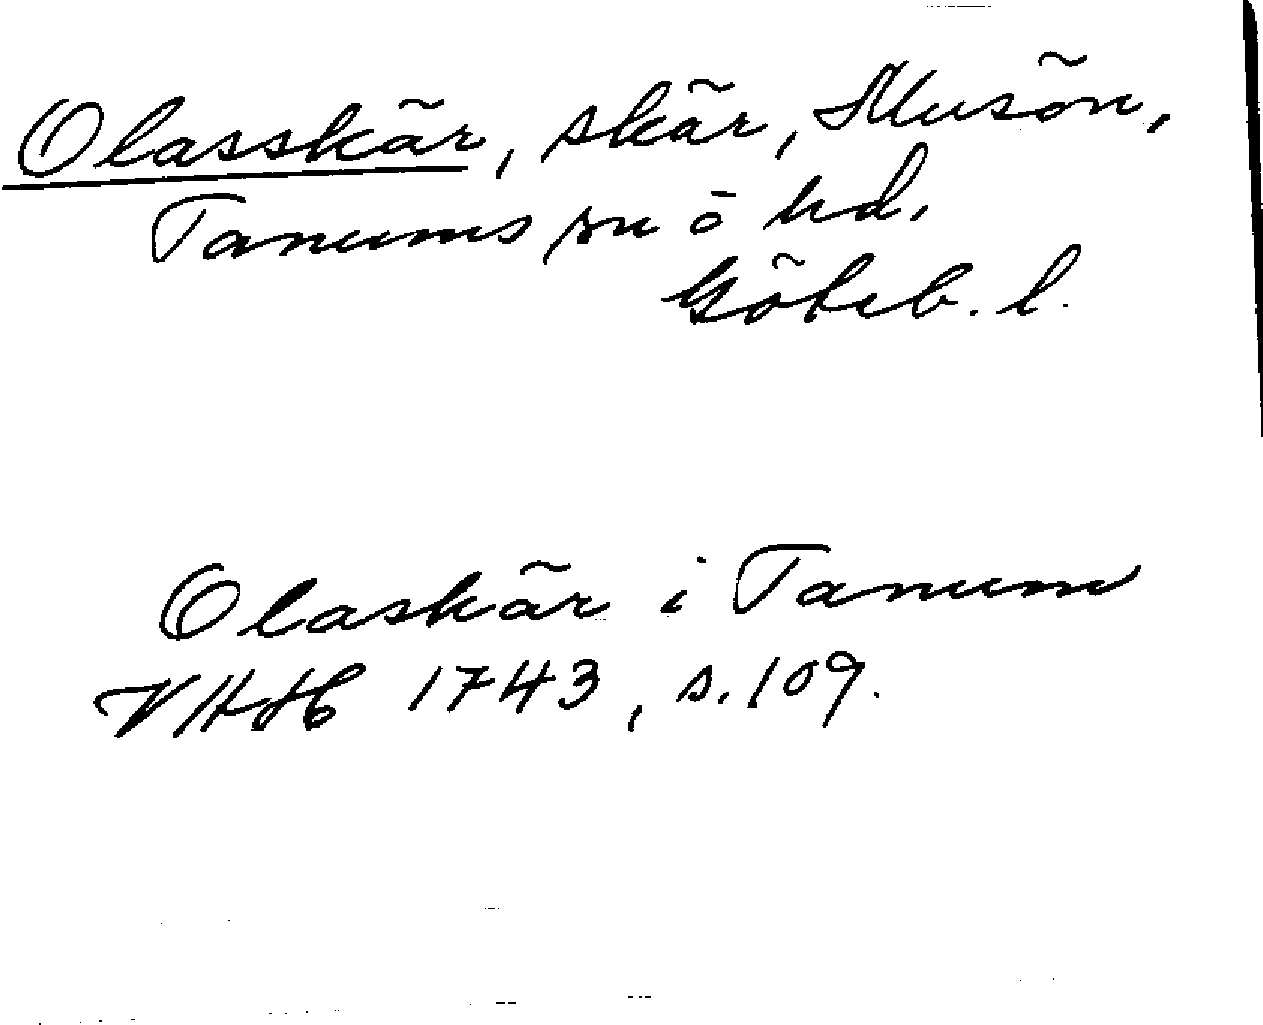 Olasskär, skär, Musön,
Tanums sn o hd.
Göteb. l.
Olaskär i Tanum
1743, s. 109.